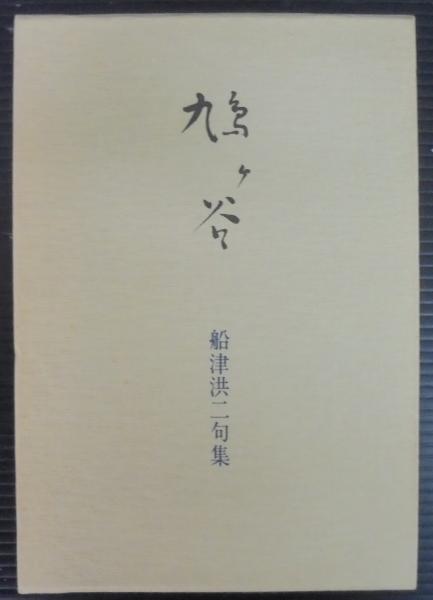 鳩ヶ谷
船津洪二句集